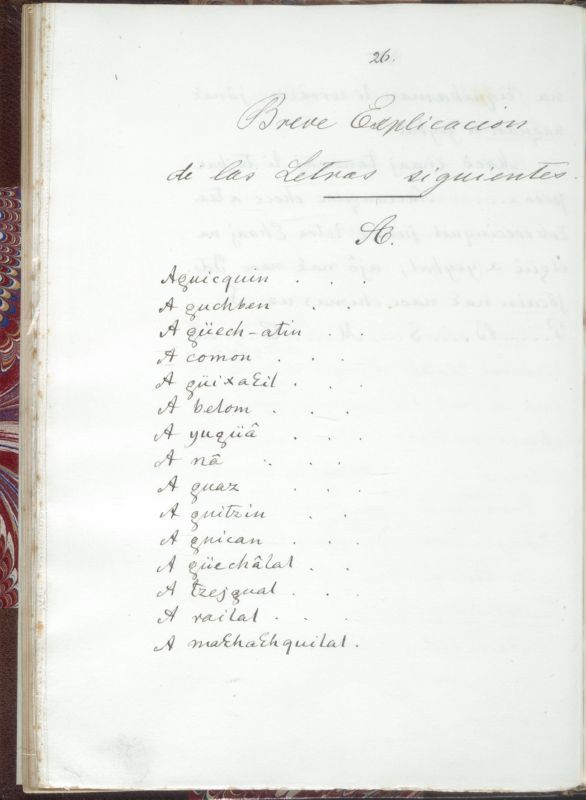 26.
Breve Explicacion
de las Letras siguientes.
A.
Aguicquin . . .
A guchben . . .
A güech-atin . .
A comon . . .
A güixaɛil . . .
A belom . . .
A yugüâ . . .
A nâ . . .
A guaz . . .
A guitzin . . .
A guican . . .
A güechâlal . .
A tzesgual . . .
A railal . . .
A maɛhaɛhquilal .